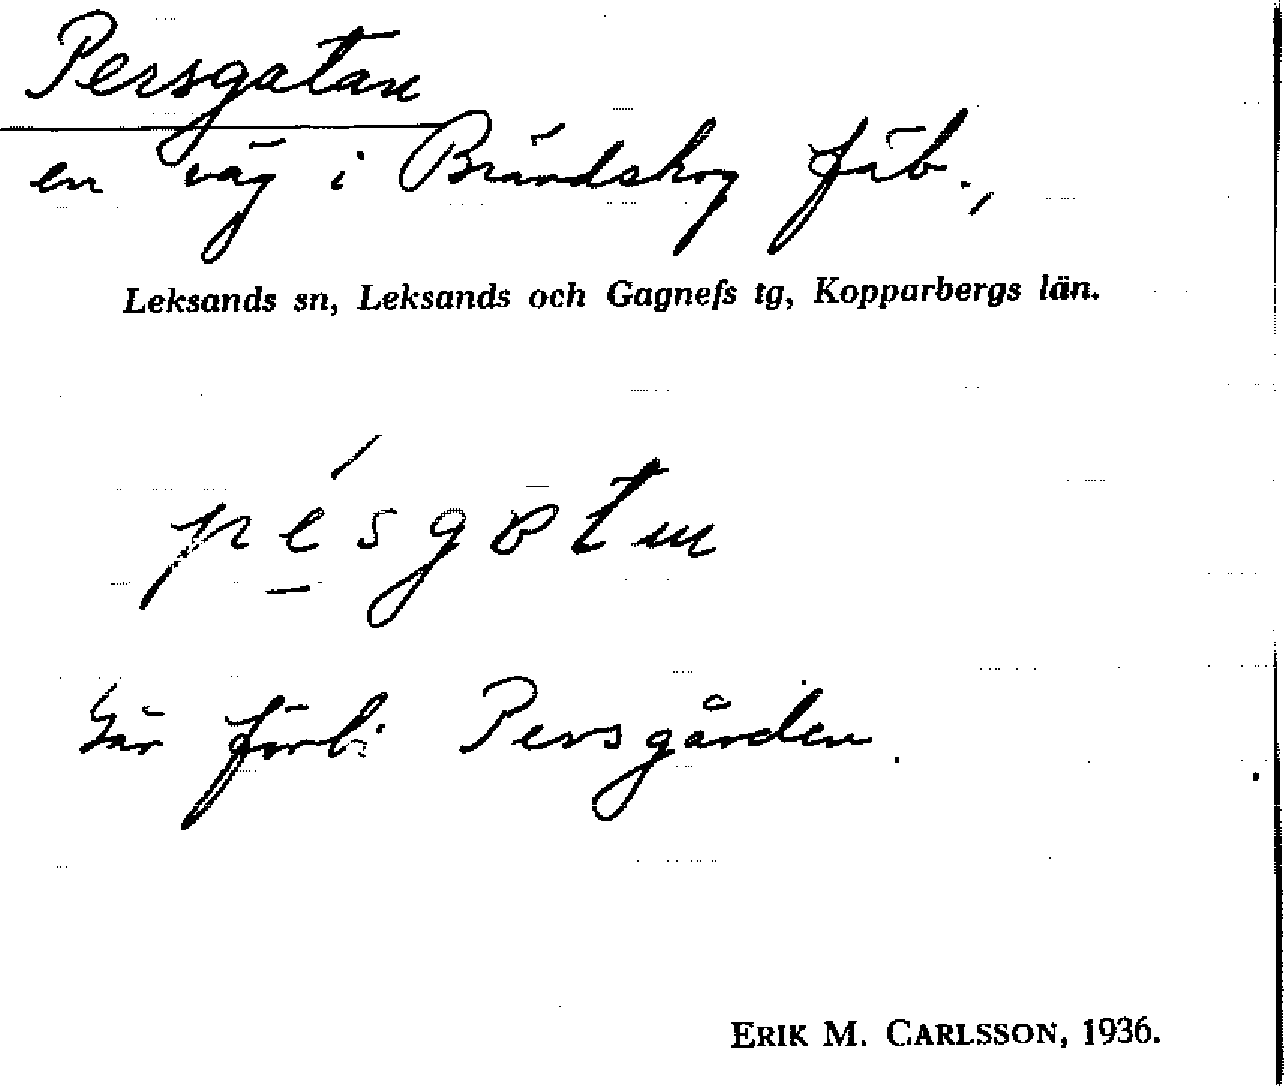 Persgatan
en väg i Brändskog fäb.,
Leksands sn, Leksands och Gagnefs tg, Kopparbergs län.
pésgotn
Går förbi Persgården.
ERIK M. CARLSSON, 1936.